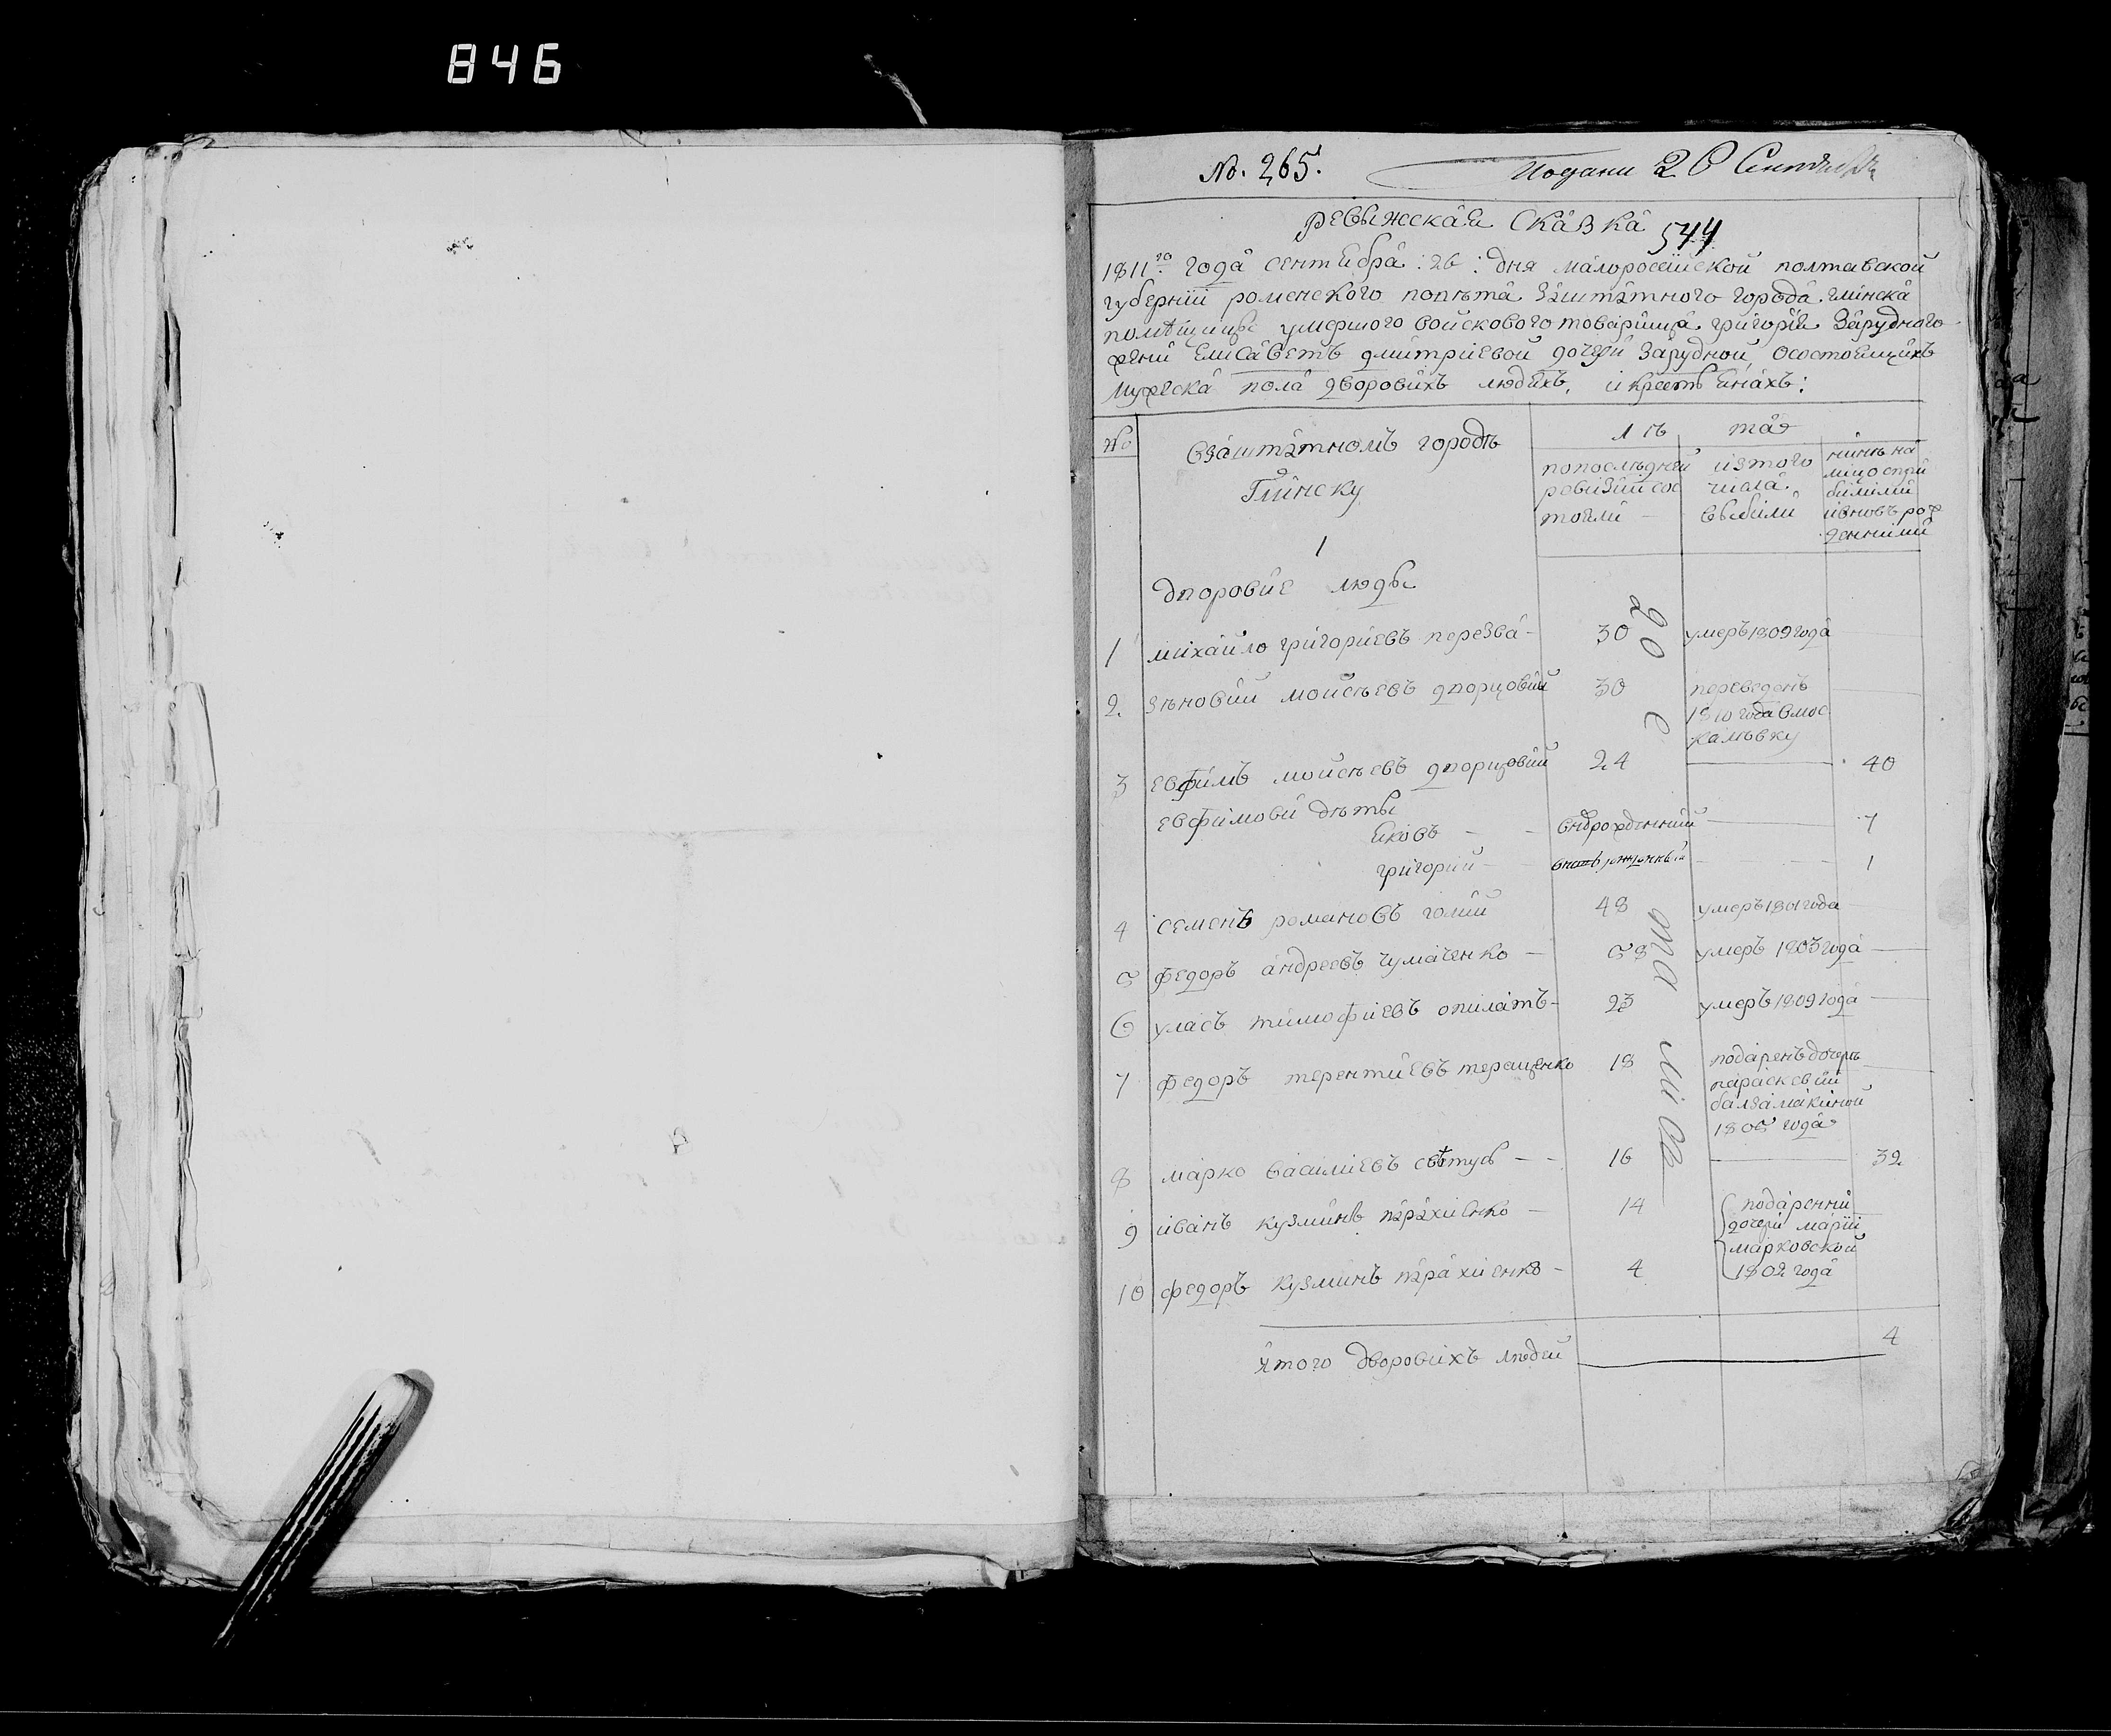 846
No. 265. Подани 26 Сентября
ревыжская сказка 544
1811го года сентебра :26: дня малоросейской полтавской
губернии роменского повѣта заштатного города глинска
помѣщицы умершого войскового товарища григория Зарудного
жени Елисаветъ дмитриевой дочери Зарудной, осостоящихъ
мужеска пола дворовихъ людехъ, и крестьянахъ:
No Взаштатномъ городѣ лѣ та
Глинску
попослѣдней ревизии состояли
изтого числа выбили
нинѣ на лицо спри билими ивновъ рожденними
1
дворовие люды
1 михайло григориевъ перезва - 30 умеръ 1809 года
2. зѣновий мойсѣевъ дворцовий 30 переведенъ
1810 года вмос
калѣвку
3 евфимъ мойсѣевъ дворцовий 24 40
евфимови дѣты
яковъ - - внврожденний 7
григорий - вновь рожденный 1
4 семенъ романовъ голий 48 умеръ 1801 года
5 федоръ андреевъ чумаченко - 58 умеръ 1805 года
6 уласъ тимофиевъ опилатъ - 23 умеръ 1809 года
7 федоръ терентиевъ терещенко 18 подаренъ дочерѣ
параскевий
балзамакиной
1805 года
8 марко василиевъ свѣтусь - - 16 32
9 иванъ кузминъ парахиенко - 14 подаренний
дочери марии
марковской
1802 года
10 федоръ кузминъ парахиенко - 4
итого дворовихъ людей 4